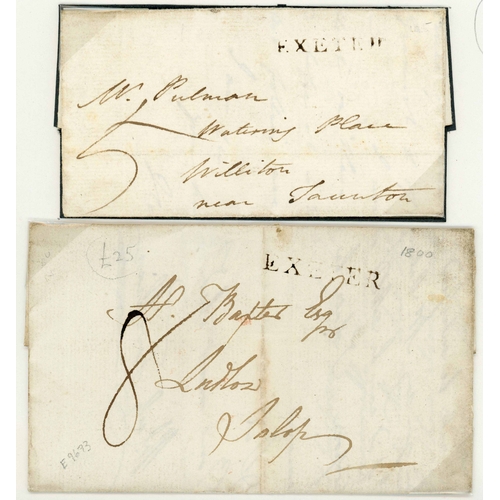 EXETER
Mr. Pulman
5
Watering Place
Williton
near Taunton
£25
EXETER
1800
H. Baxter Esqr
8
Ludlow
Salop
E9693